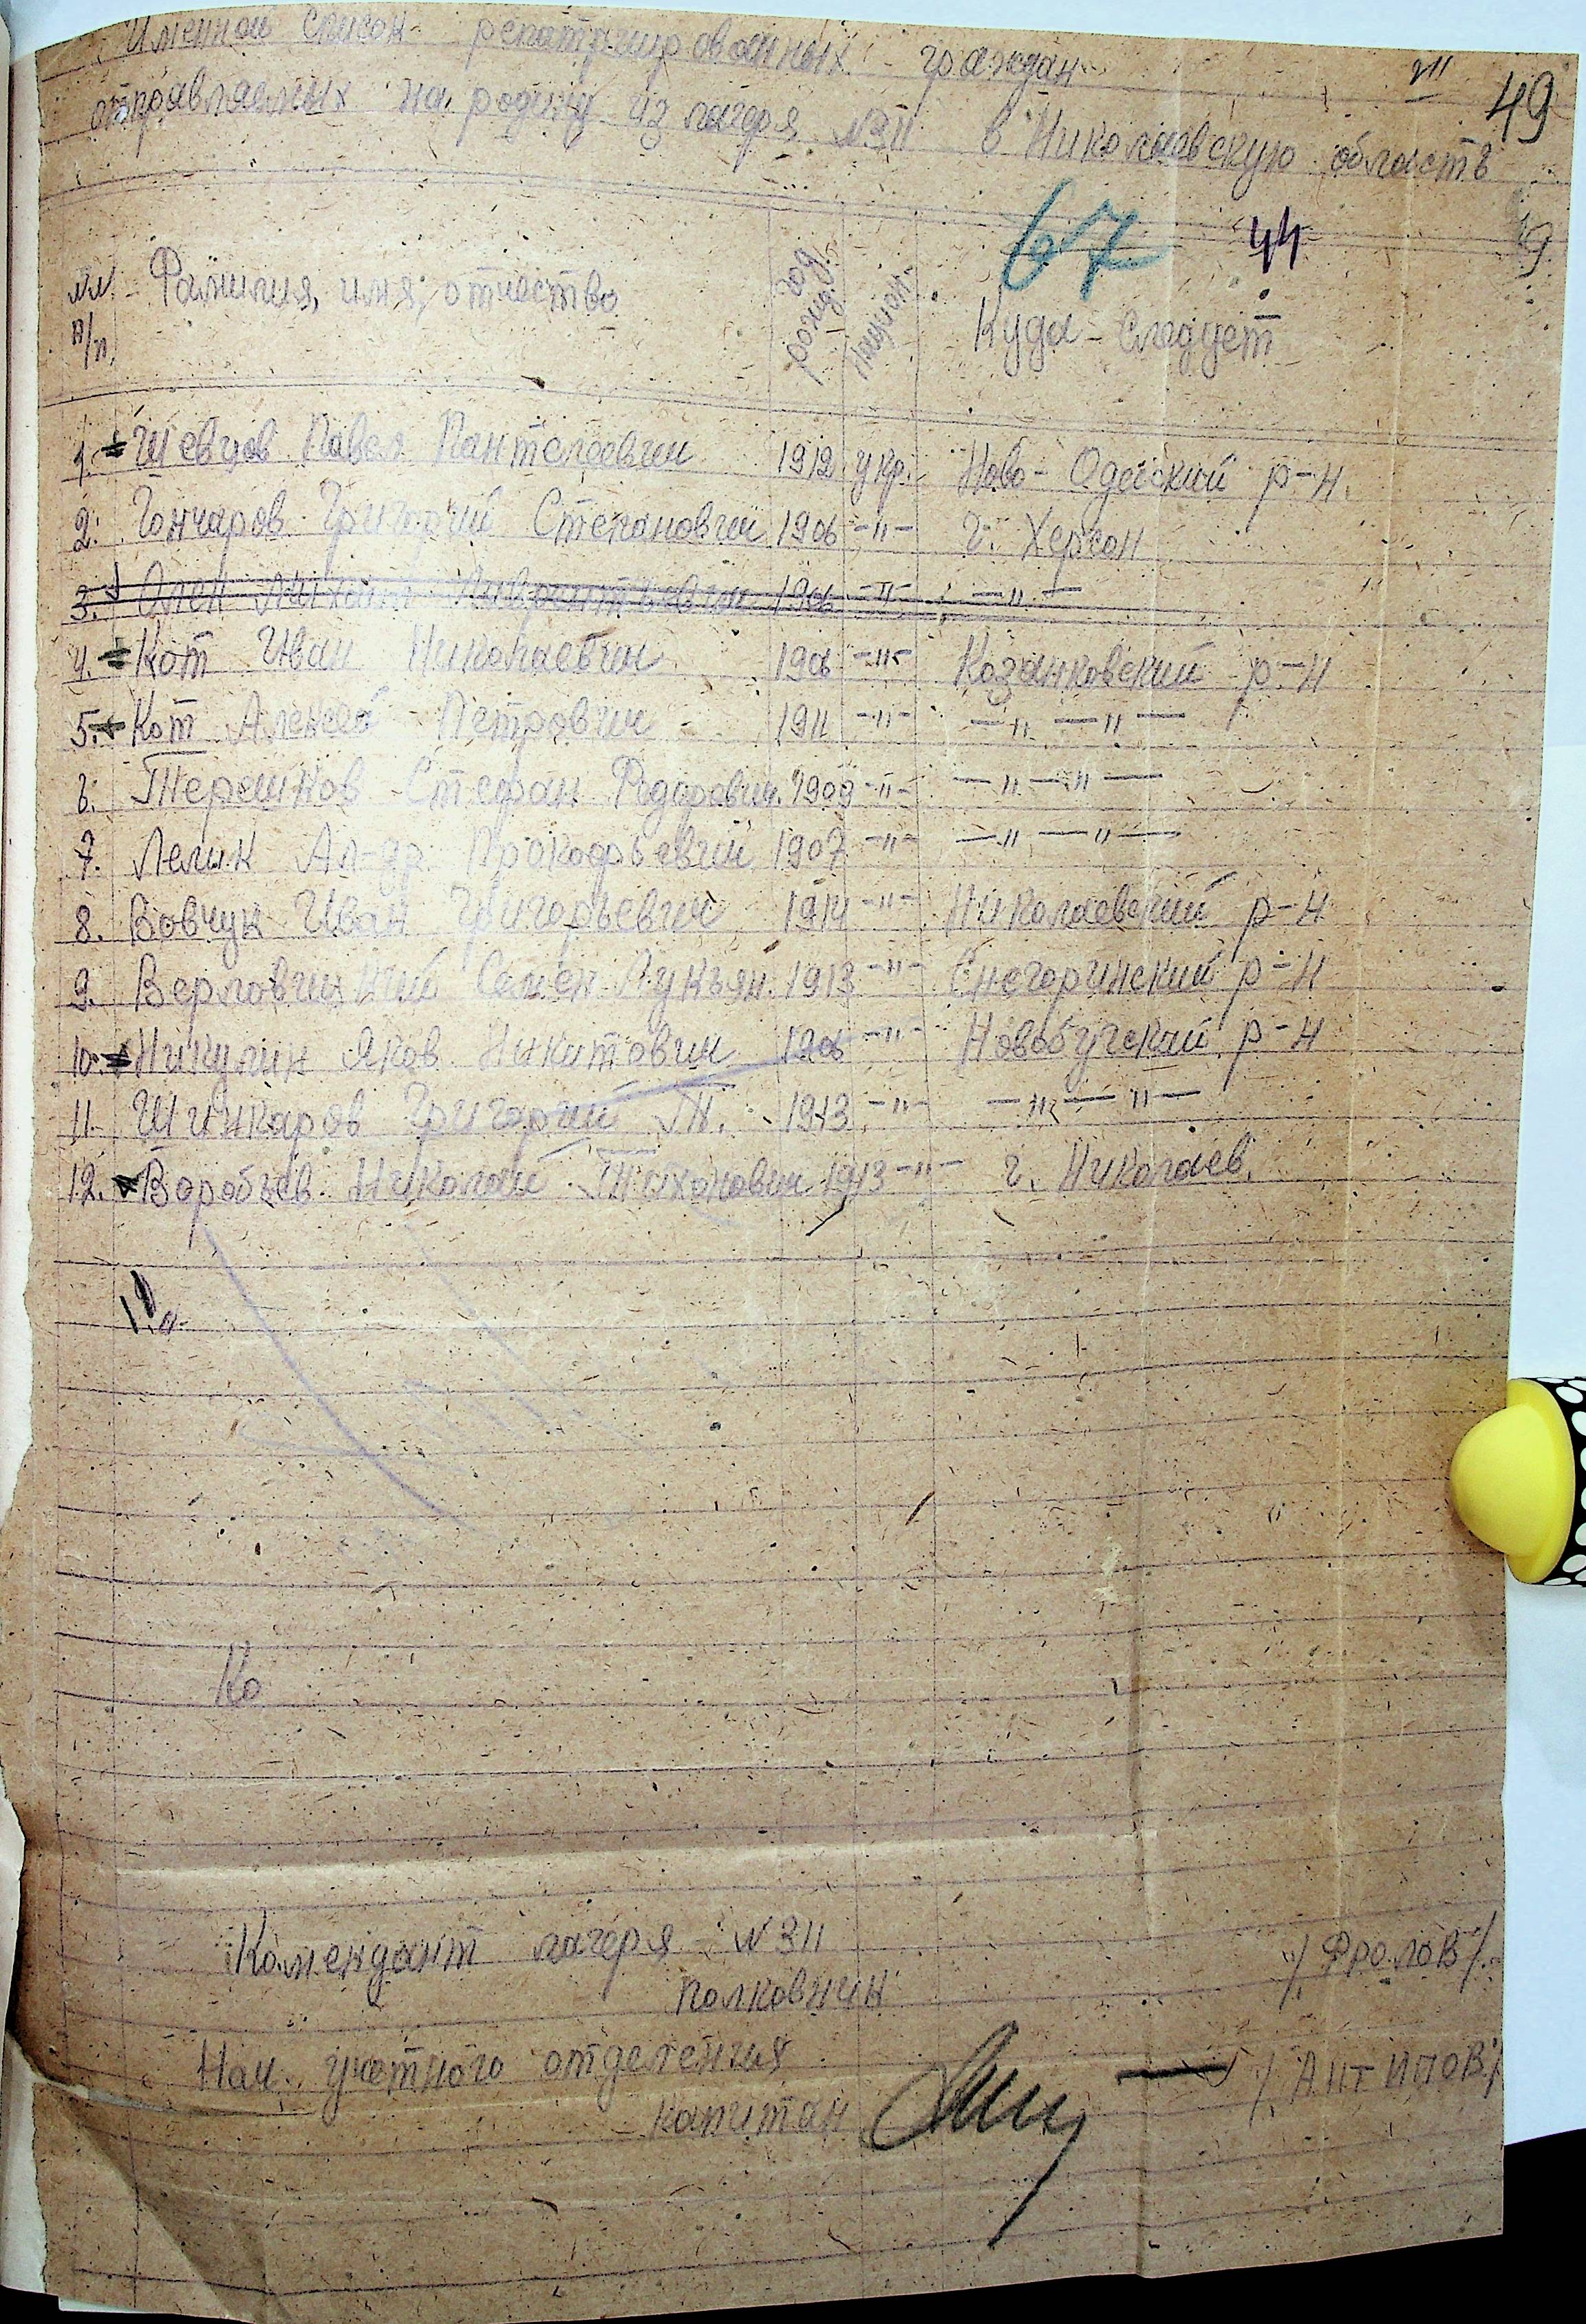 Именной список репатриированных граждан
отправляемых на родину из лагеря №311 в Николаевскую область
49
67 44
№№ п/п Фамилия, имя, отчество год рожд. национ. Куда следует
1. Шевцов Павел Пантелеевич 1912 укр. Ново-Одесский р-н.
2. Гончаров Григорий Степанович 1906 -"- г. Херсон
3. Михаил 1906 -"- -"-
4. Кот Иван Николаевич 1906 -"- Казанковский р-н
5. Кот Алексей Петрович 1911 -"- -"- -"-
6. Терешков Стефан Федорович 1909 -"- -"- -"-
7. Лелик Ал-др Прокофьевич 1907 -"- -"- -"-
8. Вовчук Иван Григорьевич 1914 -"- Николаевский р-н
9. Семен Лукьян. 1913 -"- Снегоринский р-н
10. Никулин Яков Никитович 1906 -"- Новобугский р-н
11. Шинкаров Григорий Т. 1913 -"- -"- -"-
12. Воробьев Николай Тихонович 1913 -"- г. Николаев.
Ко
Комендант лагеря №311
полковник /Фролов/
Нач. учетного отделения
капитан /Антипов/